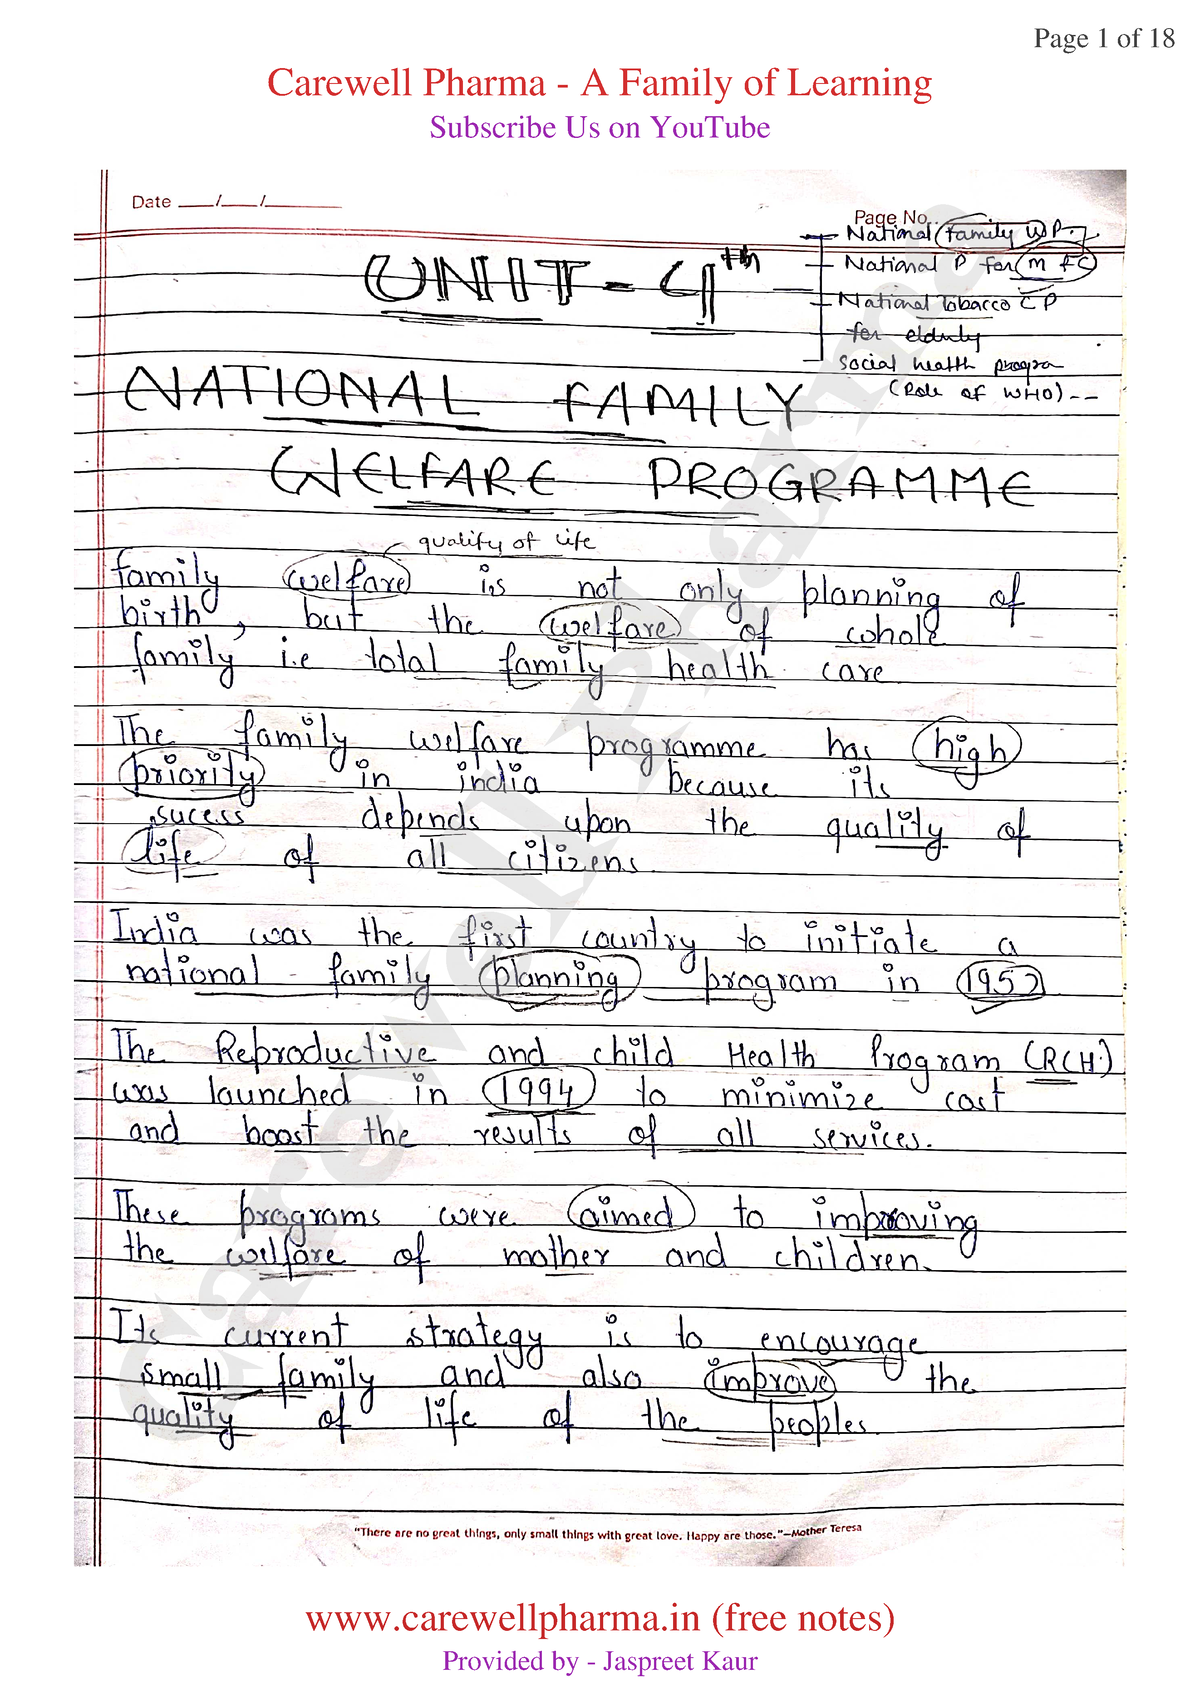 Page 1 of 18
Carewell Pharma - A Family of Learning
Subscribe Us on YouTube
Date ___/___/______
Page No.
National family W P.
National P for M & C
National Tobacco C P
for elderly
Social health progra
(Role of WHO) --
UNIT - 4th
NATIONAL FAMILY
WELFARE PROGRAMME
quality of life
family welfare is not only planning of
birth, but the welfare of whole
family i.e total family health care
The family welfare programme has high
priority in india because its
sucess depends upon the quality of
life of all citizens.
India was the first country to initiate a
national family planning program in 1952
The Reproductive and child Health Program (RCH)
was launched in 1994 to minimize cost
and boost the results of all services.
These programs were aimed to improving
the welfare of mother and children.
Its current strategy is to encourage
small family and also improve the
quality of life of the peoples.
"There are no great things, only small things with great love. Happy are those."—Mother Teresa
www.carewellpharma.in (free notes)
Provided by - Jaspreet Kaur
Carewell Pharma